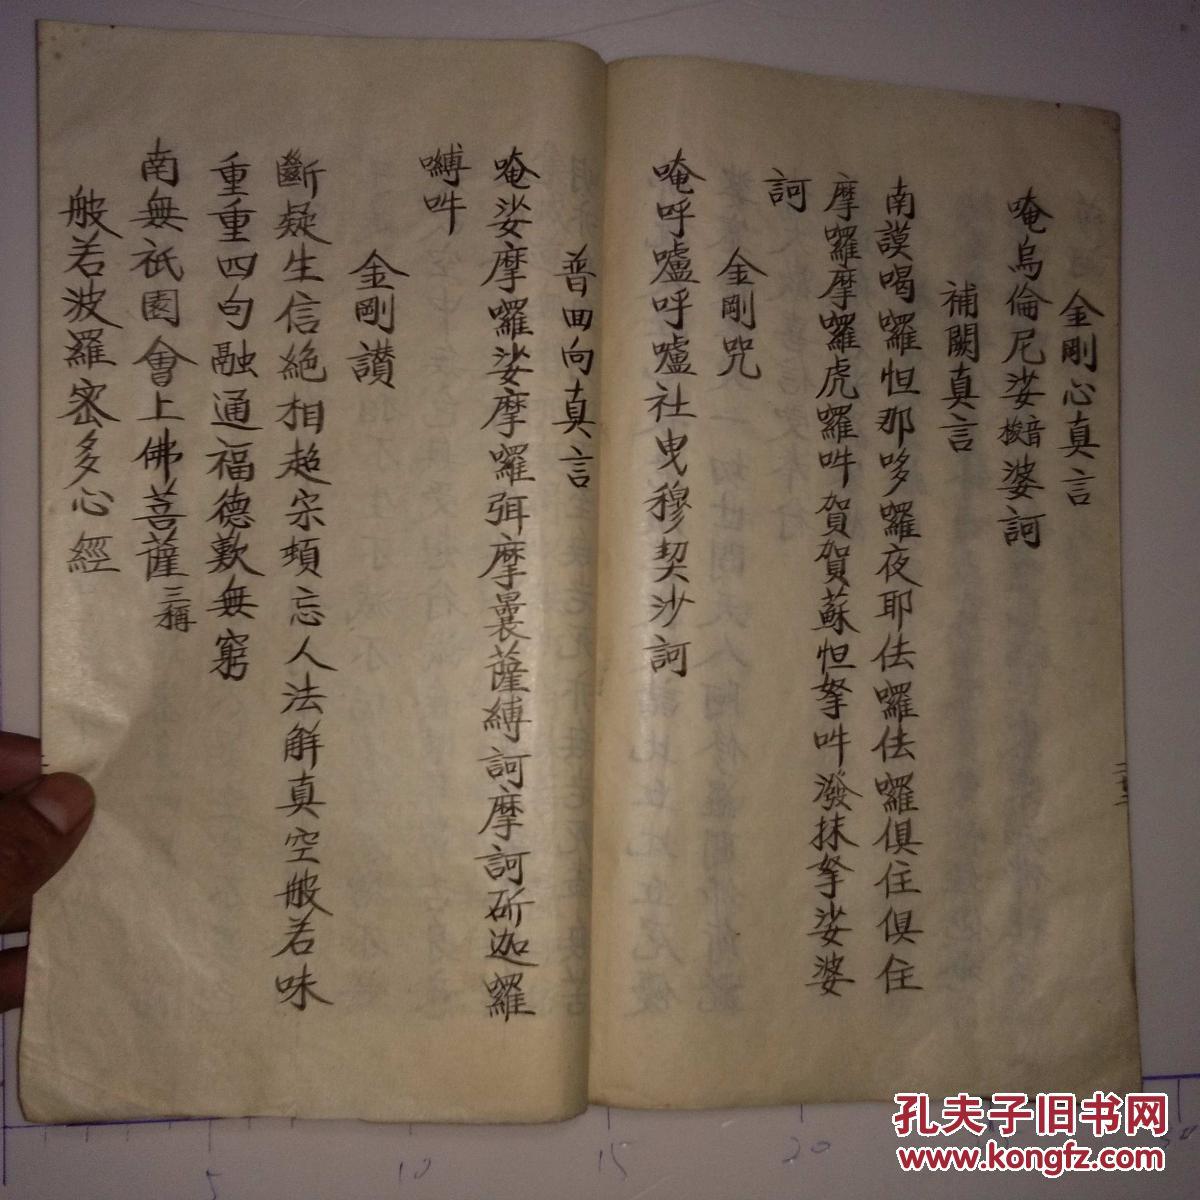 金剛心真言
唵烏倫尼娑婆訶
補闕真言
南謨喝囉怛那哆囉夜耶佉囉佉囉俱住俱住
摩囉摩囉虎囉吽賀賀蘇怛拏吽潑抹拏娑婆
訶
金剛咒
唵呼嚧呼嚧社曳穆契沙訶
普回向真言
唵娑摩囉娑摩囉弭摩曩薩縛訶摩訶斫迦囉
嚩吽
金剛讚
斷疑生信絶相超宗頓忘人法解真空般若味
重重四句融通福德歎無窮
南無祇園會上佛菩薩三稱
般若波羅密多心經
孔夫子旧书网
www.kongfz.com
5
10
15
20